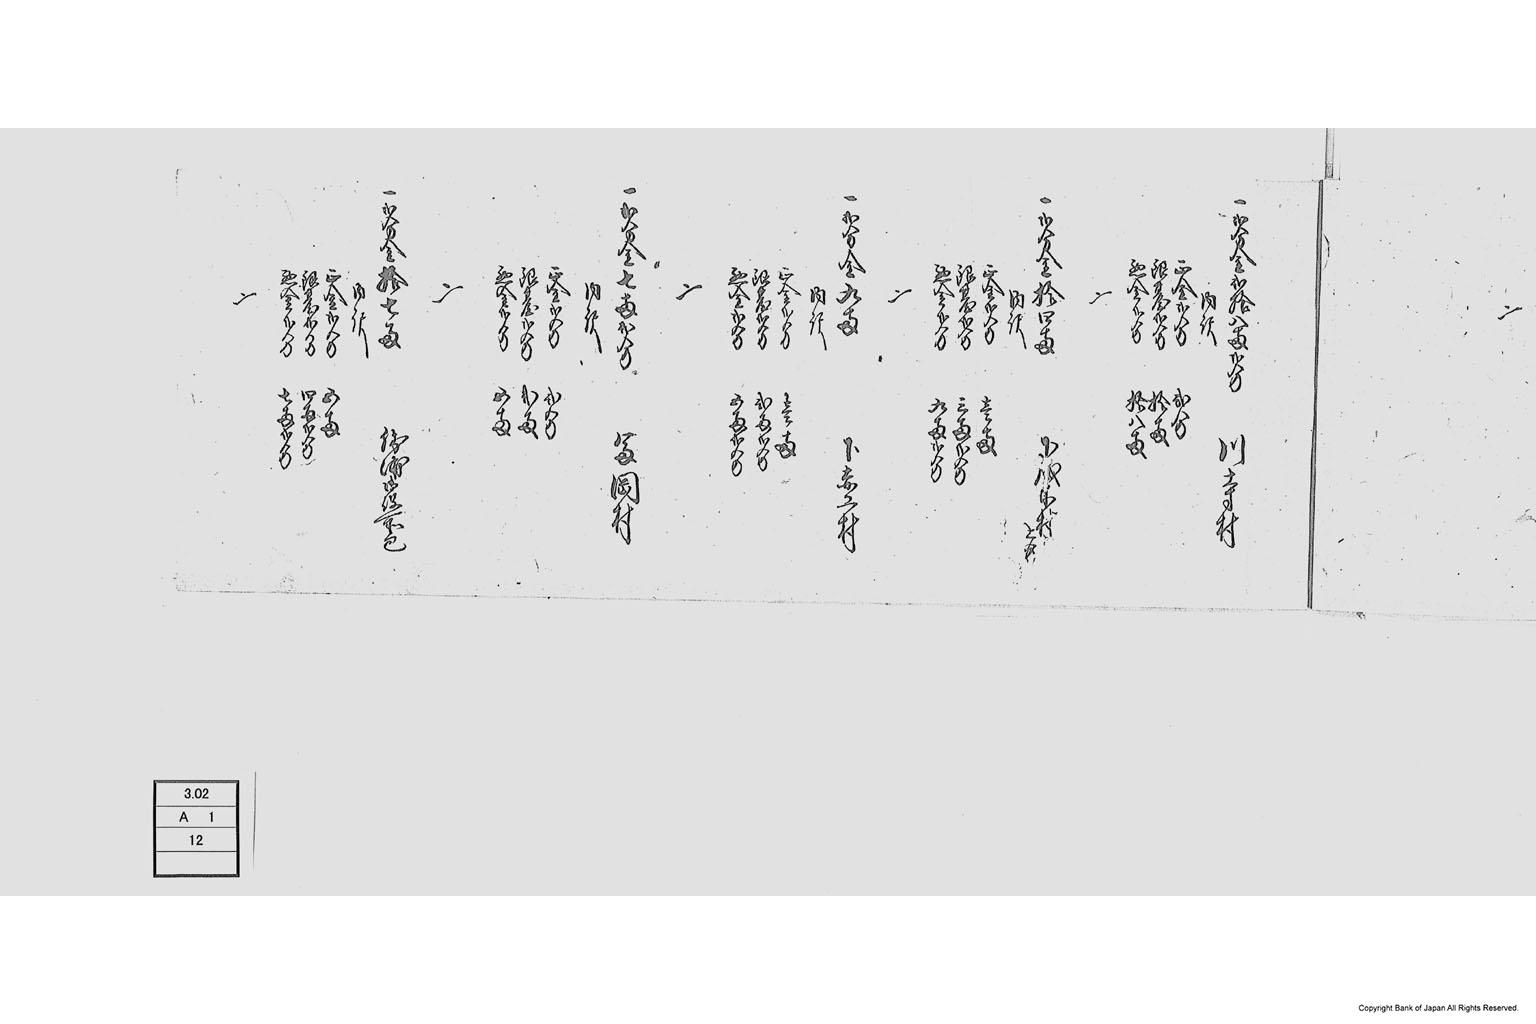 一弐分金弐拾八両弐分 川寺村
内訳
正金弐分 弐分
銀台弐分 拾両
悪金弐分 拾八両
一弐分金拾四両
内訳
正金弐分 壱両
銀台弐分 三両弐分
悪金弐分 九両弐分
一弐分金九両 下赤工村
内訳
正金弐分 壱両
銀台弐分 弐両弐分
悪金弐分 五両弐分
一弐分金七両弐分 冨岡村
内訳
正金弐分 弐分
銀台弐分 弐両
悪金弐分 五両
一弐分金拾七両
内訳
正金弐分 五両
銀台弐分 四両弐分
悪金弐分 七両弐分
3.02
A 1
12
Copyright Bank of Japan All Rights Reserved.